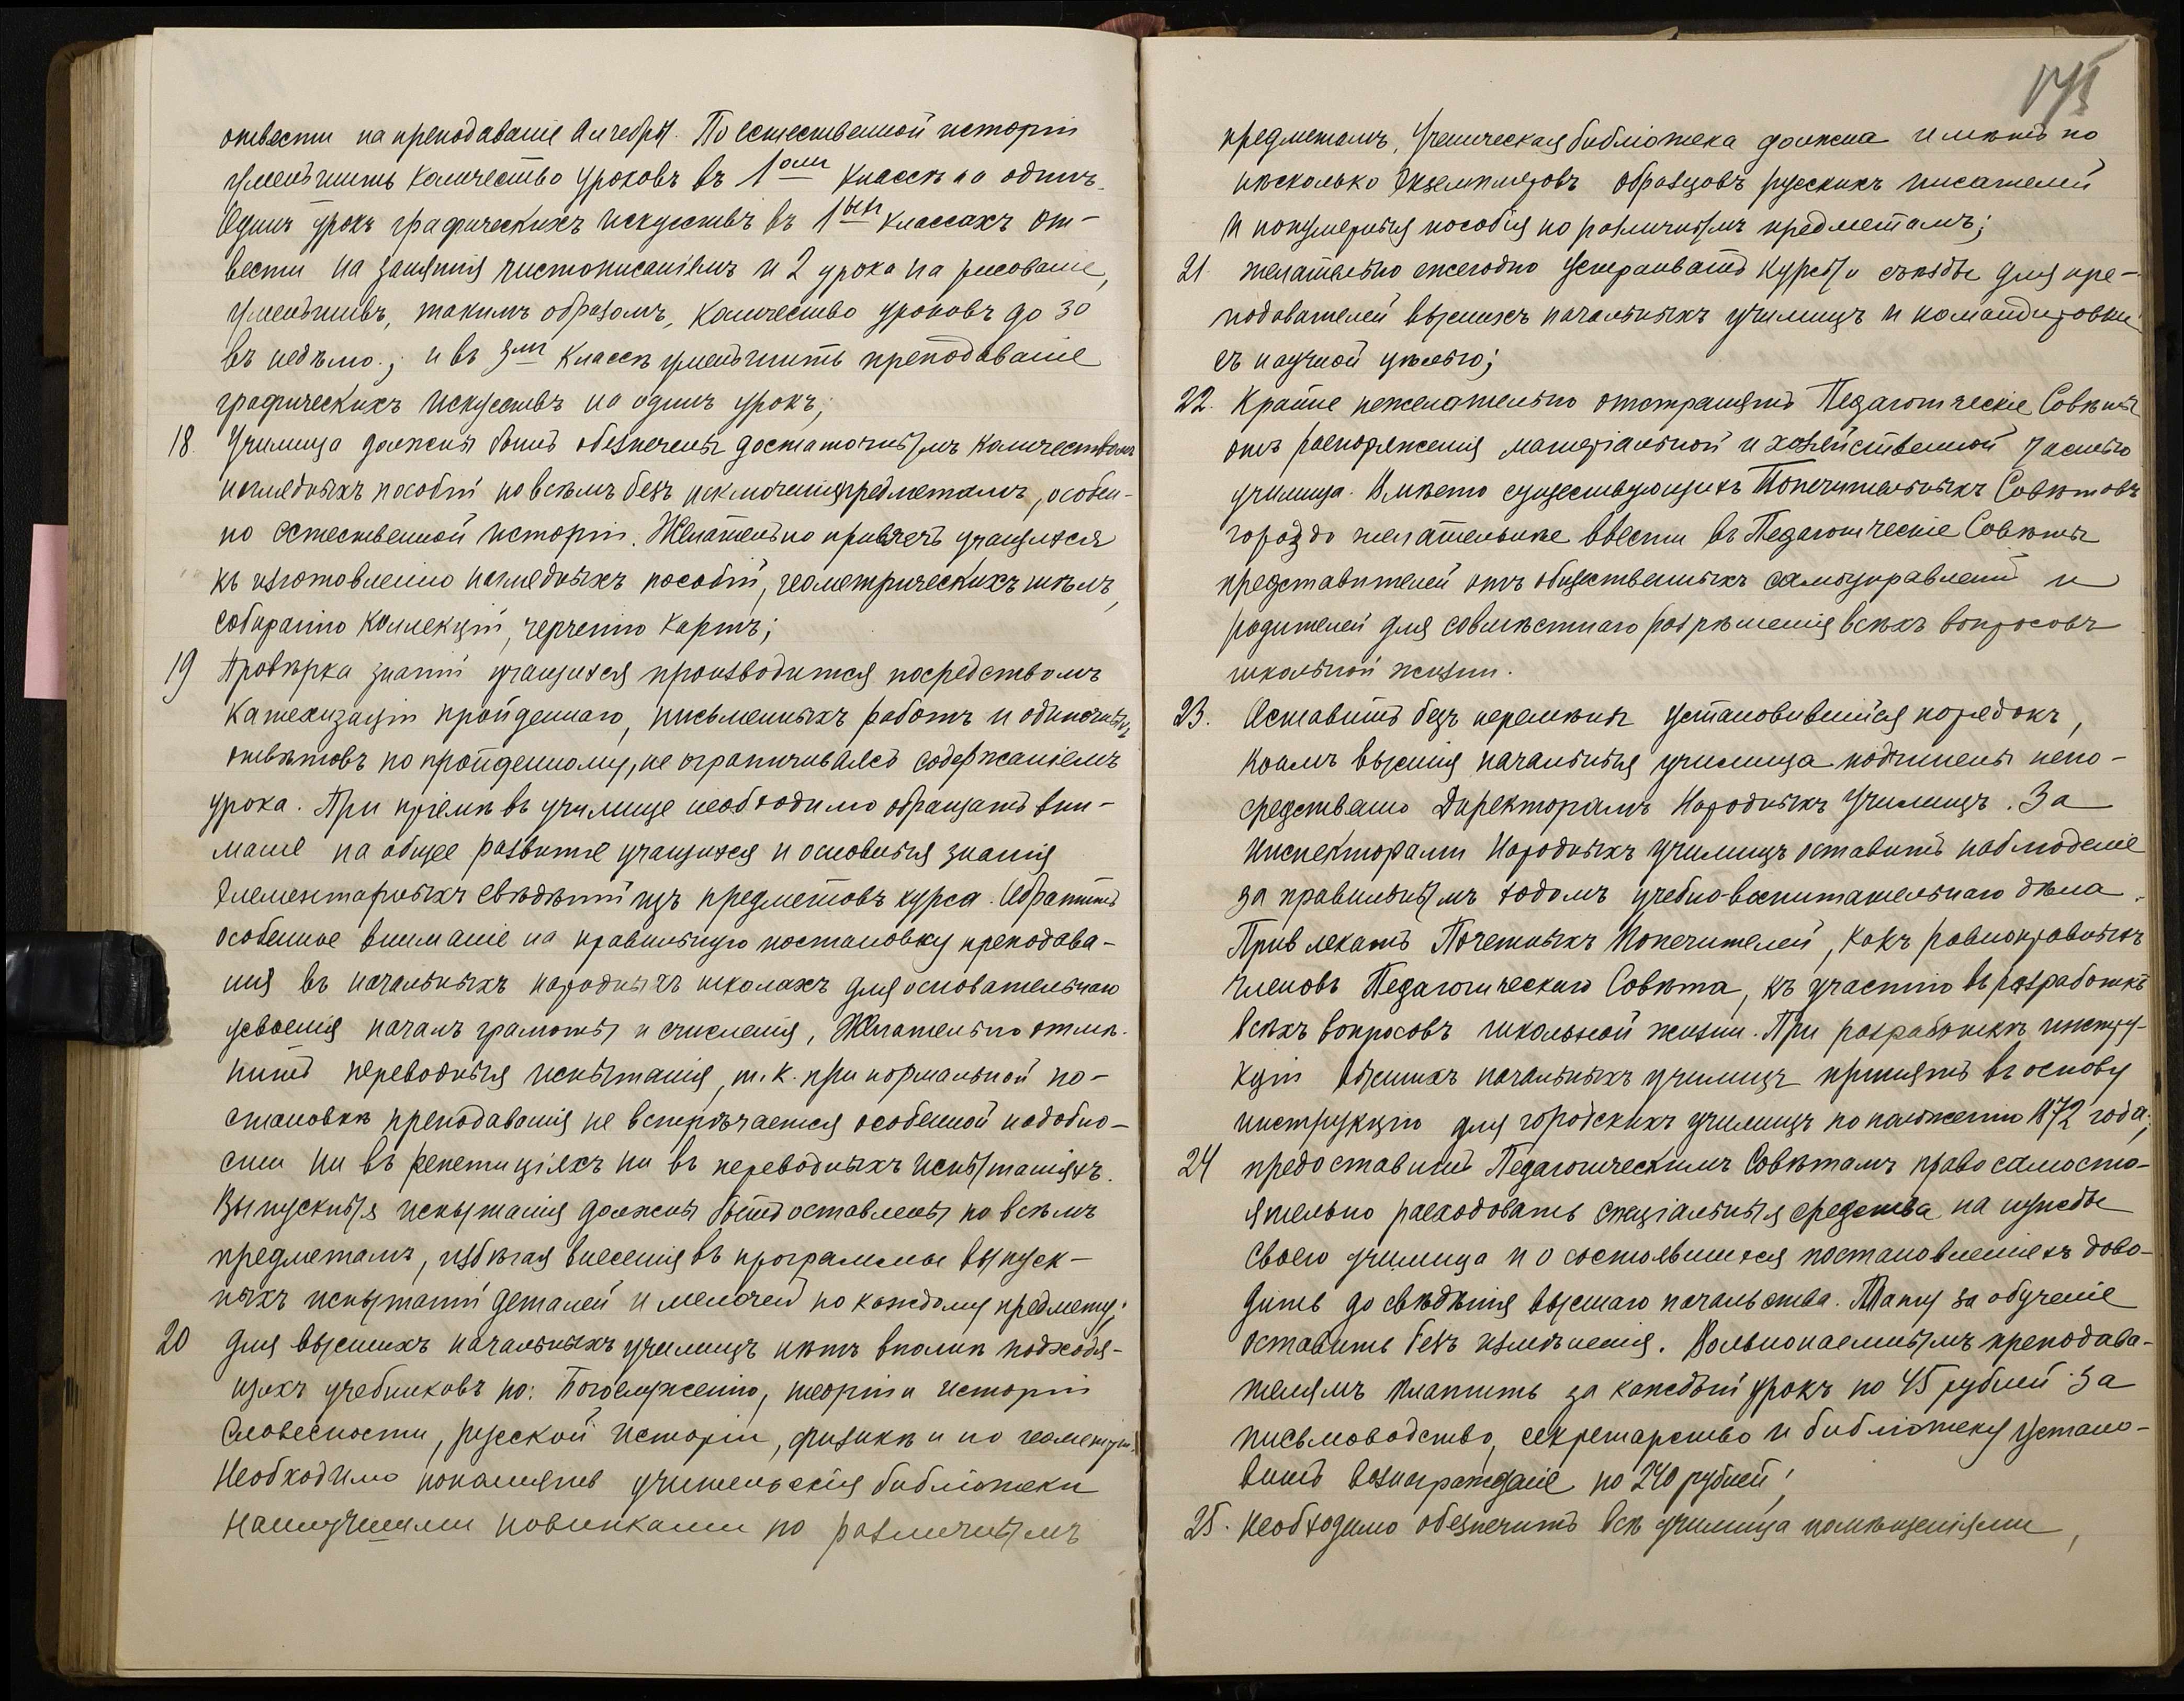 отвести на преподаваніе Алгебры. По естественной исторіи
уменьшить количество уроковъ въ 1омъ классѣ на одинъ.
Одинъ урокъ графическихъ искусствъ въ 1ыхъ классахъ от-
вести на занятія чистописаніемъ и 2 урока на рисованіе,
уменьшивъ, такимъ образомъ, количество уроковъ до 30
въ недѣлю; и въ 3мъ классѣ уменьшить преподаваніе
графическихъ искусствъ на одинъ урокъ;
18. Училища должны быть обезпечены достаточнымъ количествомъ
наглядныхъ пособій по всѣмъ безъ исключенія предметамъ, особен-
но естественной исторіи. Желательно привлечь учащихся
къ изготовленію наглядныхъ пособій, геометрическихъ тѣлъ,
собиранію коллекцій, черченію картъ;
19 Провѣрка знаній учащихся производится посредствомъ
катехизаціи пройденнаго, письменныхъ работъ и одиночныхъ
отвѣтовъ по пройденному, не ограничиваясь содержаніемъ
урока. При пріемѣ въ училище необходимо обращать вни-
маніе на общее развитіе учащихся и основныя знанія
элементарныхъ свѣдѣній изъ предметовъ курса. Обратить
особенное вниманіе на правильную постановку преподава-
нія въ начальныхъ народныхъ школахъ для основательнаго
усвоенія началъ грамоты и счисленія, Желательно отмѣ-
нить переводныя испытанія, т.к. при нормальной по-
становкѣ преподаванія не встрѣчается особенной надобно-
сти ни въ репетиціяхъ ни въ переводныхъ испытаніяхъ.
Выпускныя испытанія должны быть оставлены по всѣмъ
предметамъ, избѣгая внесенія въ программы выпуск-
ныхъ испытаній деталей и мелочей по каждому предмету;
20 Для высшихъ начальныхъ училищъ нѣтъ вполнѣ подходя-
щихъ учебниковъ по: Богослуженію, теоріи и исторіи
Словесности, русской исторіи, физикѣ и по геометріи.
Необходимо пополнять учительскія библіотеки
наилучшими новинками по различнымъ
предметамъ, Ученическая библіотека должна имѣть по
нѣсколько экземпляровъ образцовъ русскихъ писателей
и популярныя пособія по различнымъ предметамъ;
21. желательно ежегодно устраивать курсы и съѣзды для пре-
подавателей высшихъ начальныхъ училищъ и командировки
съ научной цѣлью;
22. Крайне нежелательно отстранять Педагогическіе Совѣты
отъ распоряженія матеріальной и хозяйственной частью
училища. Вмѣсто существующихъ Попечительныхъ Совѣтовъ
гораздо желательнѣе ввести въ Педагогическіе Совѣты
представителей отъ общественныхъ самоуправленій и
родителей для совмѣстнаго разрѣшенія всѣхъ вопросовъ
школьной жизни.
23. Оставить безъ перемѣны установившійся порядокъ,
коимъ высшія начальныя училища подчинены непо-
средственно Директорамъ Народныхъ Училищъ. За
Инспекторами Народныхъ училищъ оставить наблюденіе
за правильнымъ ходомъ учебно-воспитательнаго дѣла.
Привлекать Почетныхъ Попечителей, какъ равноправныхъ
членовъ Педагогическаго Совѣта, къ участію въ разработкѣ
всѣхъ вопросовъ школьной жизни. При разработкѣ инстру-
кціи высшихъ начальныхъ училищъ принять въ основу
инструкцію для городскихъ училищъ по положенію 1872 года;
24 предоставить Педагогическимъ Совѣтамъ право самосто-
ятельно расходовать спеціальныя средства на нужды
своего училища и о состоявшихся постановленіяхъ дово-
дить до свѣдѣнія высшаго начальства. Плату за обученіе
оставить безъ измѣненія. Вольнонаемнымъ преподава-
телямъ платить за каждый урокъ по 45 рублей За
письмоводство, секретарство и библіотеку устано-
вить вознагражденіе по 240 рублей;
25. Необходимо обезпечить всѣ училища помѣщеніями,